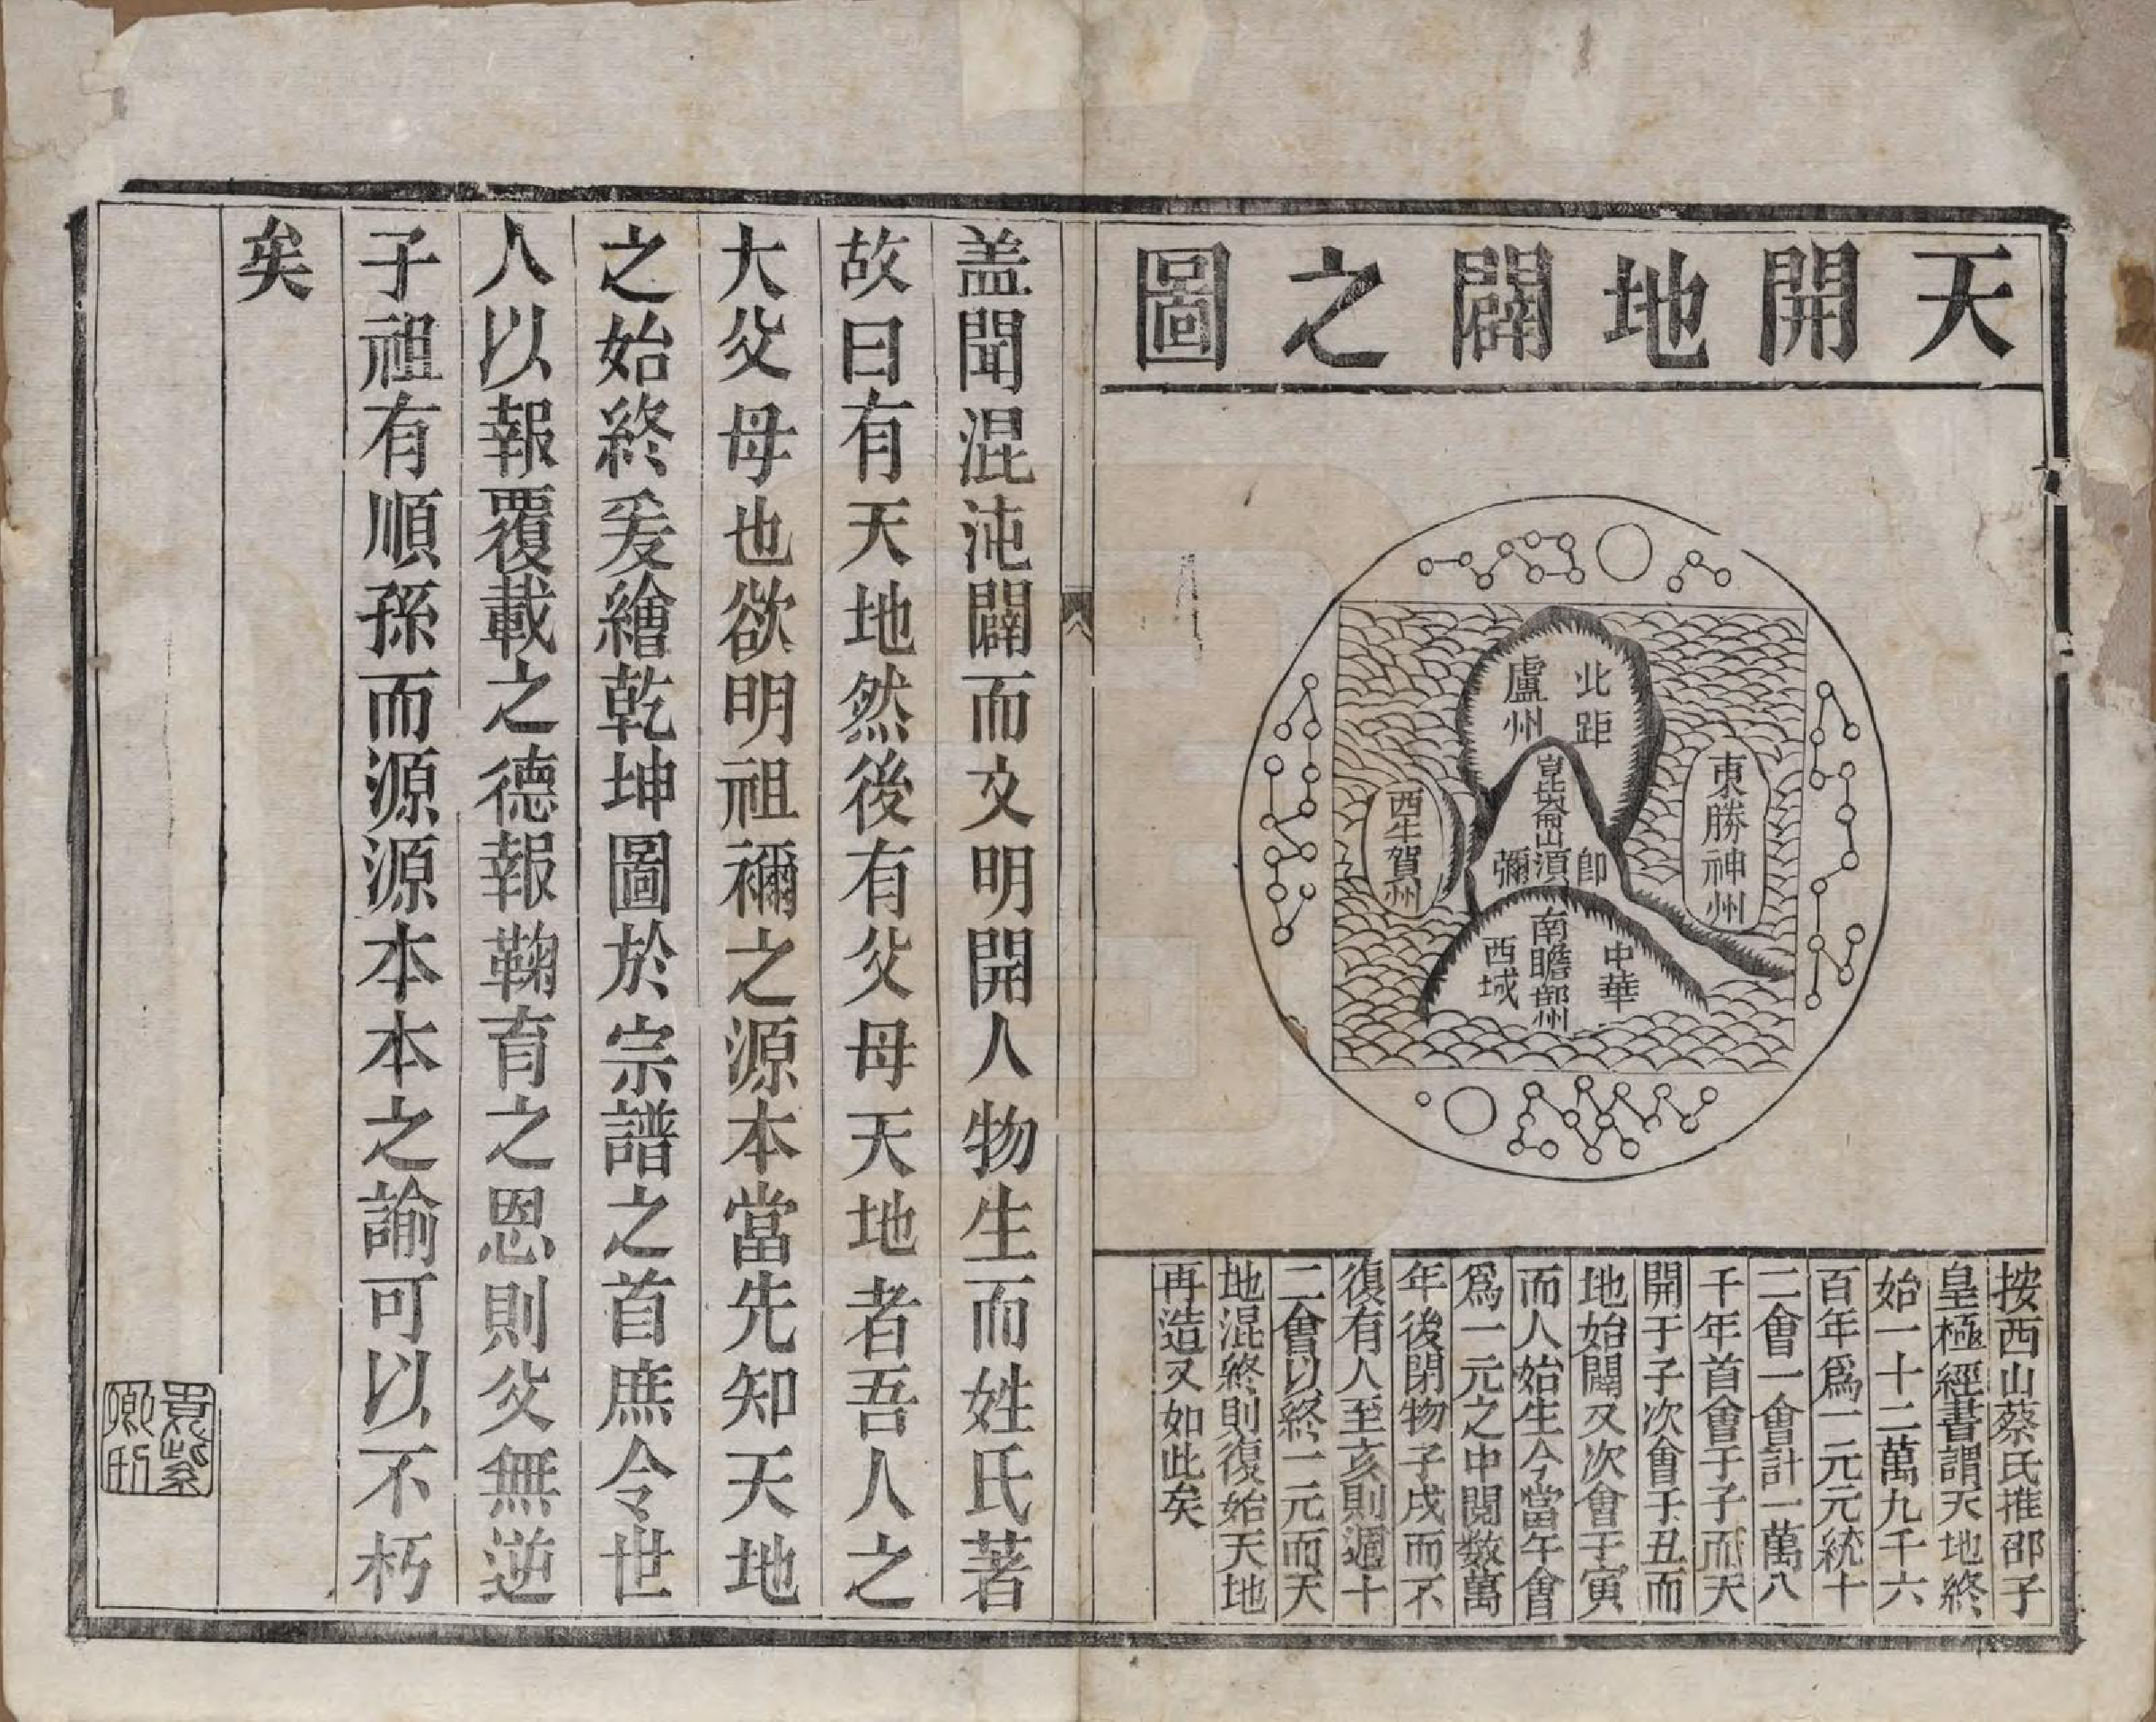 天開地闢之圖
北距
盧州
崑崙山
即須彌
東勝神州
西牛賀州
中華
南瞻部州
西域
按西山蔡氏推邵子
皇極經書謂天地終
始一十二萬九千六
百年爲一元元統十
二會一會計一萬八
千年首會于子而天
開于子次會于丑而
地始闢又次會于寅
而人始生今當午會
爲一元之中閱数萬
年後閉物子戌而不
復有人至亥則週十
二會以終一元而天
地混終則復始天地
再造又如此矣
盖聞混沌闢而文明開人物生而姓氏著
故曰有天地然後有父母天地者吾人之
大父母也欲明祖禰之源本當先知天地
之始終爰繪乾坤圖於宗譜之首庶令世
人以報覆載之德報鞠育之恩則父無逆
子祖有順孫而源源本本之諭可以不朽
矣